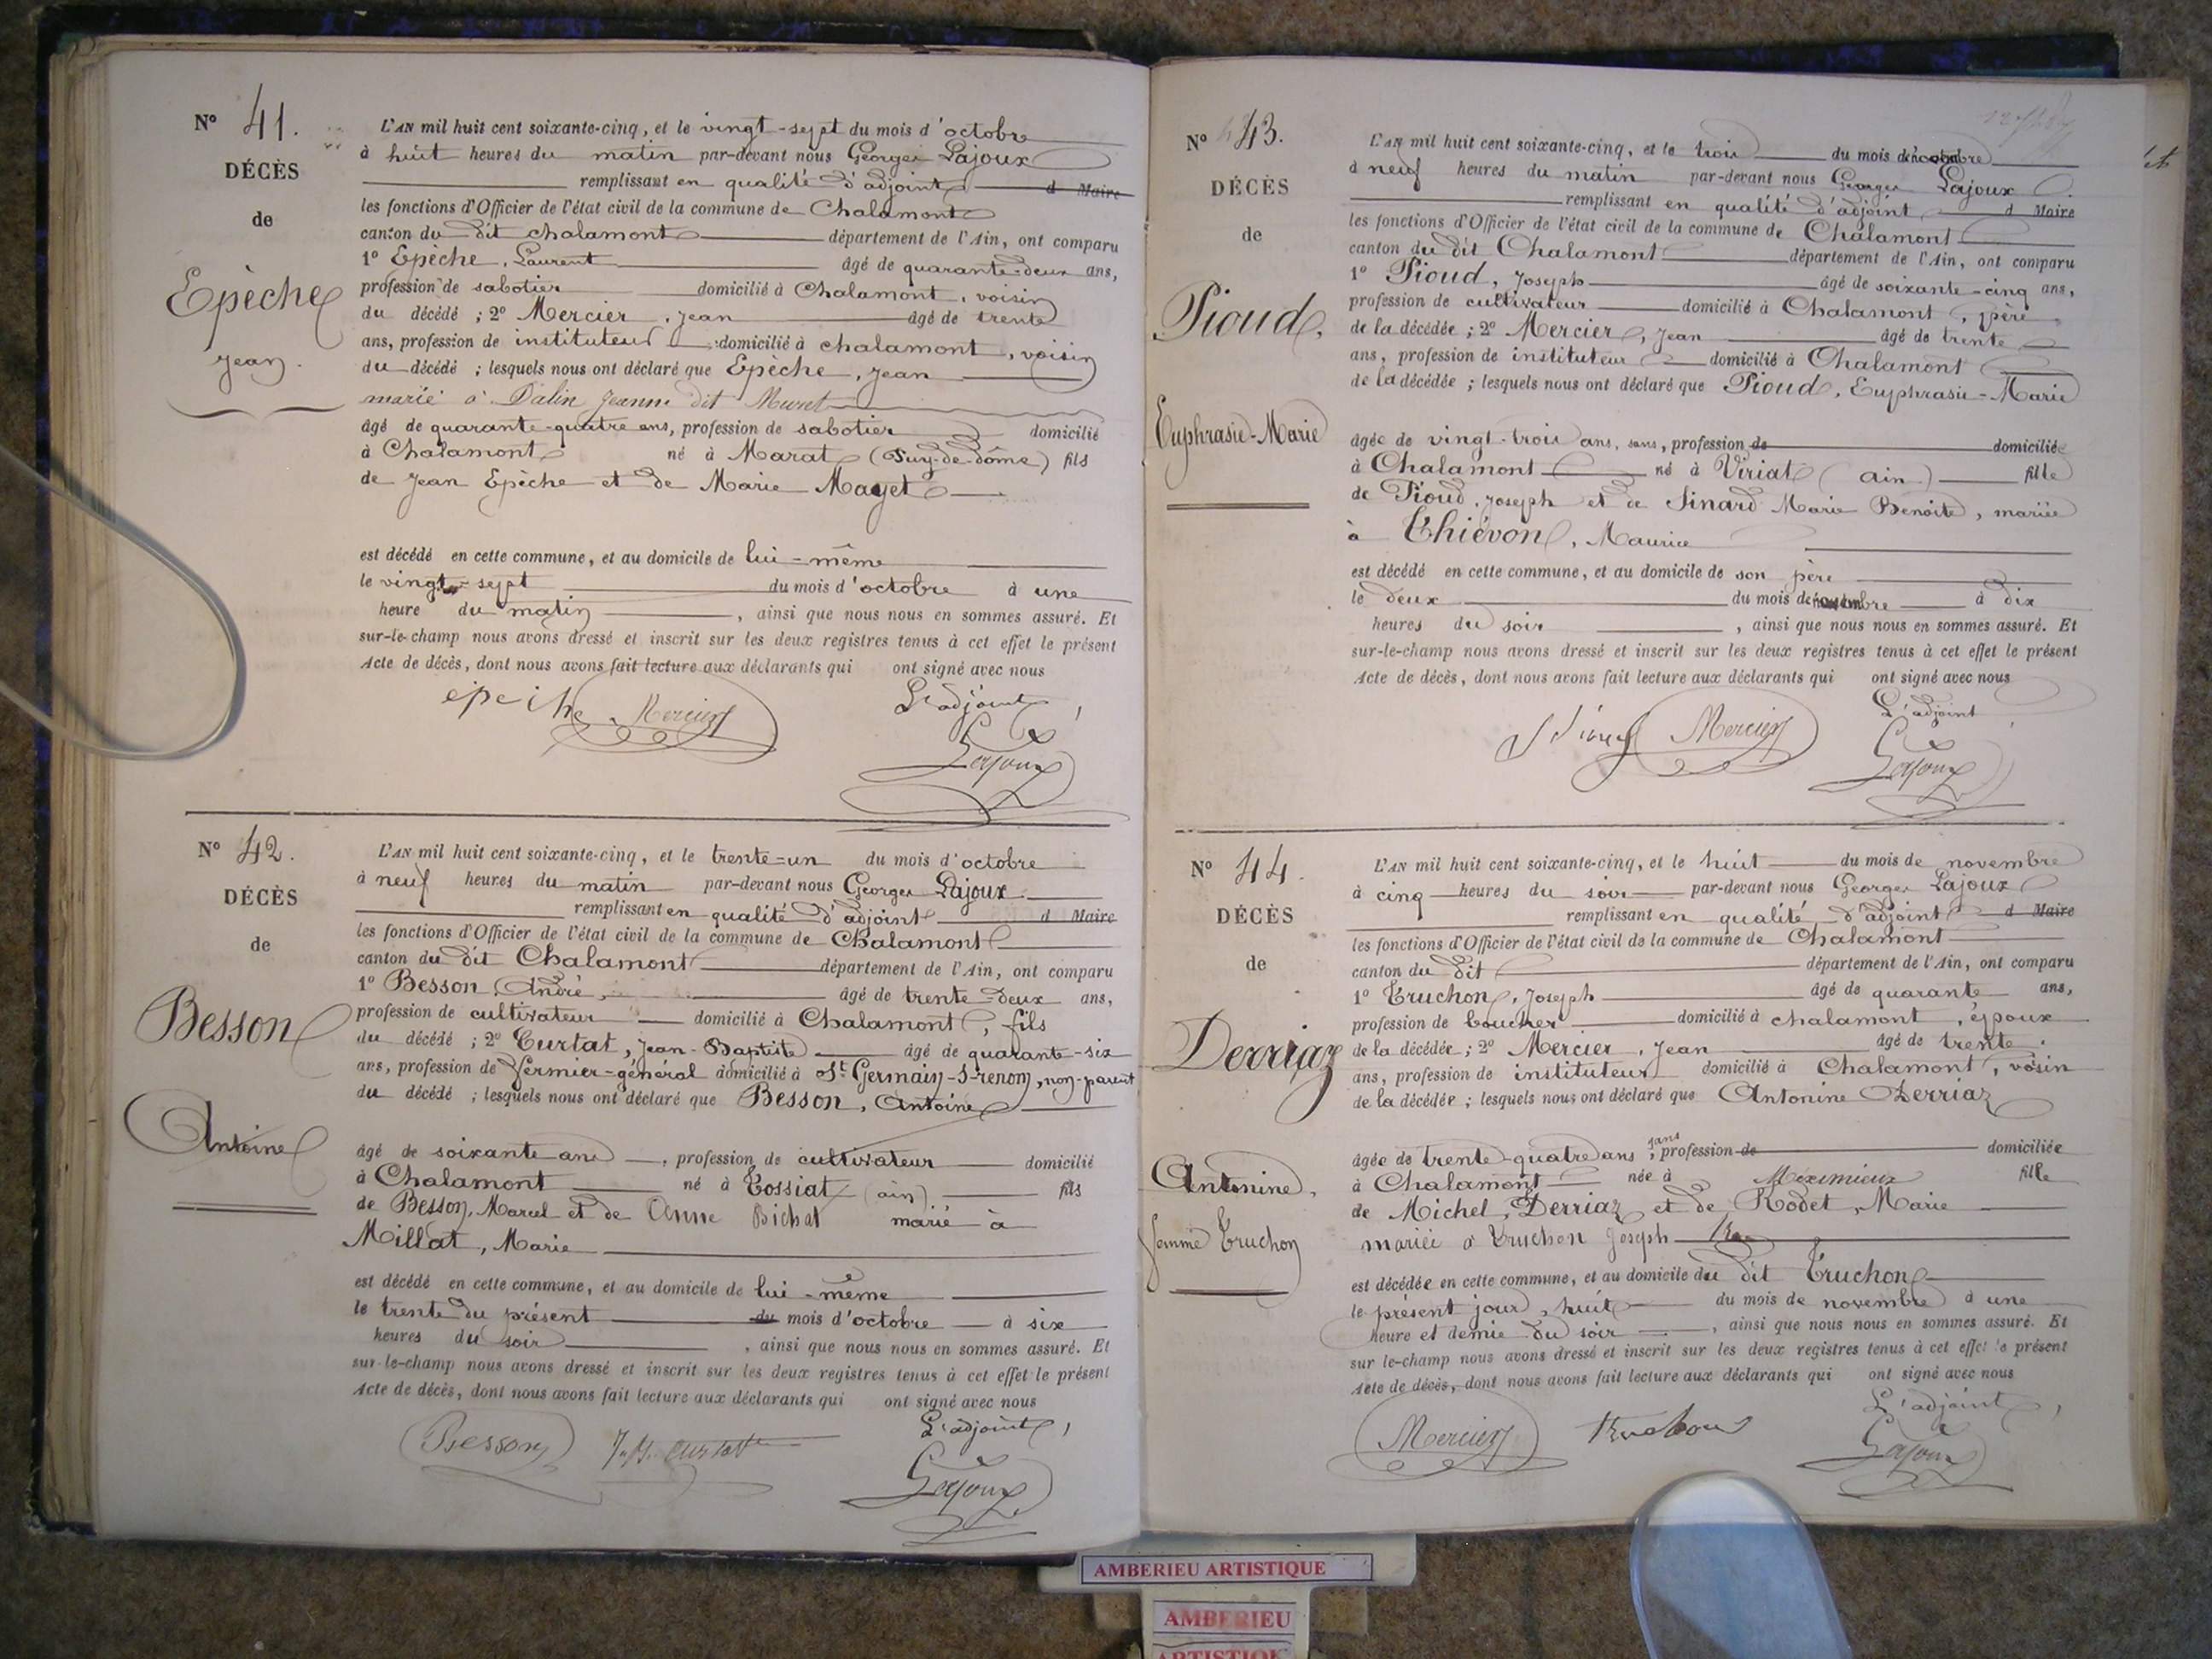 N° 41.
DÉCÈS
de
Epèche
Jean.
L'AN mil huit cent soixante-cinq, et le vingt-sept du mois d'octobre
à huit heures du matin par-devant nous Georges Lajoux
remplissant en qualité d'adjoint d Maire
les fonctions d'Officier de l'état civil de la commune de Chalamont
canton du dit chalamont département de l'Ain, ont comparu
1° Epèche, Laurent âgé de quarante-deux ans,
profession de sabotier domicilié à Chalamont, voisin
du décédé ; 2° Mercier, Jean âgé de trente
ans, profession de instituteur domicilié à chalamont, voisin
du décédé ; lesquels nous ont déclaré que Epèche, Jean
marié à Dalin Jeanne dit Muret
âgé de quarante-quatre ans, profession de sabotier domicilié
à Chalamont né à Marat (Puy-de-dôme) fils
de Jean Epèche et de Marie Mayet
est décédé en cette commune, et au domicile de lui-même
le vingt-sept du mois d'octobre à une
heure du matin, ainsi que nous nous en sommes assuré. Et
sur-le-champ nous avons dressé et inscrit sur les deux registres tenus à cet effet le présent
Acte de décès, dont nous avons fait lecture aux déclarants qui ont signé avec nous
épeche Mercier L'adjoint,
Lajoux
N° 42.
DÉCÈS
de
Besson
Antoine
L'AN mil huit cent soixante-cinq, et le trente-un du mois d'octobre
à neuf heures du matin par-devant nous Georges Lajoux
remplissant en qualité d'adjoint d Maire
les fonctions d'Officier de l'état civil de la commune de Chalamont
canton du dit Chalamont département de l'Ain, ont comparu
1° Besson, André, âgé de trente-deux ans,
profession de cultivateur domicilié à Chalamont, fils
du décédé ; 2° Curtat, Jean-Baptiste âgé de quarante-six
ans, profession de fermier-général domicilié à St Germain-s-renom, non-parent
du décédé ; lesquels nous ont déclaré que Besson, Antoine
âgé de soixante ans, profession de cultivateur domicilié
à Chalamont né à Tossiat (ain) fils
de Besson, Marcel et de Anne Bichat marié à
Millat, Marie
est décédé en cette commune, et au domicile de lui-même
le trente du présent du mois d'octobre à six
heures du soir, ainsi que nous nous en sommes assuré. Et
sur-le-champ nous avons dressé et inscrit sur les deux registres tenus à cet effet le présent
Acte de décès, dont nous avons fait lecture aux déclarants qui ont signé avec nous
Besson J.B. Curtat L'adjoint,
Lajoux
N° 43.
DÉCÈS
de
Pioud,
Euphrasie-Marie
L'AN mil huit cent soixante-cinq, et le trois du mois de novembre
à neuf heures du matin par-devant nous Georges Lajoux
remplissant en qualité d'adjoint d Maire
les fonctions d'Officier de l'état civil de la commune de Chalamont
canton du dit Chalamont département de l'Ain, ont comparu
1° Pioud, Joseph âgé de soixante-cinq ans,
profession de cultivateur domicilié à Chalamont, père
de la décédée ; 2° Mercier, Jean âgé de trente
ans, profession de instituteur domicilié à Chalamont
de la décédée ; lesquels nous ont déclaré que Pioud, Euphrasie-Marie
âgée de vingt-trois ans, sans, profession de domiciliée
à Chalamont né à Viriat (ain) fille
de Pioud, Joseph et de Sinard Marie Benoite, mariée
à Thiévon, Maurice
est décédé en cette commune, et au domicile de son père
le deux du mois de novembre à dix
heures du soir, ainsi que nous nous en sommes assuré. Et
sur-le-champ nous avons dressé et inscrit sur les deux registres tenus à cet effet le présent
Acte de décès, dont nous avons fait lecture aux déclarants qui ont signé avec nous
Mercier L'adjoint,
Lajoux
N° 44.
DÉCÈS
de
Derriaz
Antonine,
femme Truchon
L'AN mil huit cent soixante-cinq, et le huit du mois de novembre
à cinq heures du soir par-devant nous Georges Lajoux
remplissant en qualité d'adjoint d Maire
les fonctions d'Officier de l'état civil de la commune de Chalamont
canton du dit département de l'Ain, ont comparu
1° Truchon, Joseph âgé de quarante ans,
profession de boucher domicilié à chalamont, époux
de la décédée ; 2° Mercier, Jean âgé de trente
ans, profession de instituteur domicilié à Chalamont, voisin
de la décédée ; lesquels nous ont déclaré que Antonine Derriaz
âgée de trente-quatre ans, sans profession de domiciliée
à Chalamont née à Méximieux fille
de Michel, Derriaz et de Rodet, Marie
mariée à Truchon Joseph
est décédée en cette commune, et au domicile du dit Truchon
le présent jour, huit du mois de novembre à une
heure et demie du soir, ainsi que nous nous en sommes assuré. Et
sur le-champ nous avons dressé et inscrit sur les deux registres tenus à cet effet le présent
Acte de décès, dont nous avons fait lecture aux déclarants qui ont signé avec nous
Mercier Truchon L'adjoint,
Lajoux
AMBERIEU ARTISTIQUE
AMBERIEU
ARTISTIQUE